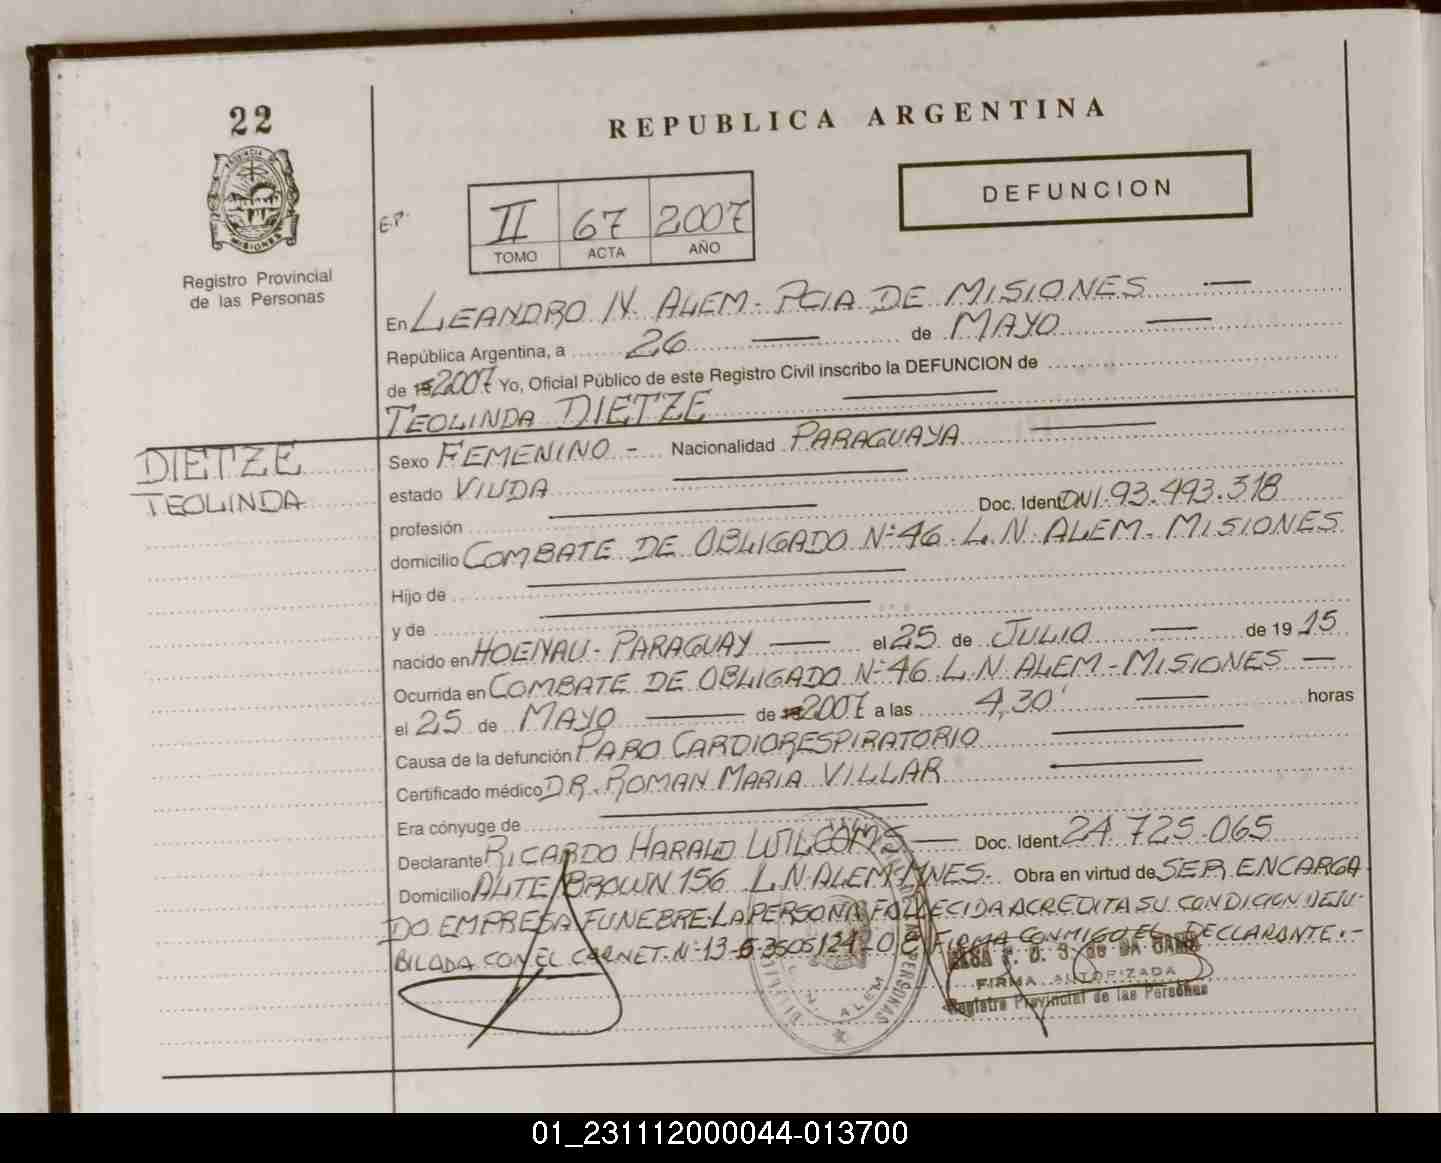 22
REPUBLICA ARGENTINA
DEFUNCION
PROVINCIA DE
MISIONES
Registro Provincial
de las Personas
E.P.
II 67 2007
TOMO ACTA AÑO
En LEANDRO N. ALEM - PCIA DE MISIONES
República Argentina, a 26 de MAYO
de 2007 Yo, Oficial Público de este Registro Civil inscribo la DEFUNCION de
TEOLINDA DIETZE
DIETZE
TEOLINDA
Sexo FEMENINO - Nacionalidad PARAGUAYA
estado VIUDA
profesión Doc. Ident DNI. 93.493.318
domicilio COMBATE DE OBLIGADO Nº 46. L. N. ALEM - MISIONES
Hijo de
y de
nacido en HOENAU - PARAGUAY el 25 de JULIO de 1915
Ocurrida en COMBATE DE OBLIGADO Nº 46 L.N. ALEM - MISIONES
el 25 de MAYO de 2007 a las 4,30' horas
Causa de la defunción PARO CARDIORESPIRATORIO
Certificado médico DR. ROMAN MARIA VILLAR
Era cónyuge de
Declarante RICARDO HARALD WILCOMS Doc. Ident. 24.725.065
Domicilio ALTE BROWN 156 L.N. ALEM-MNES. Obra en virtud de SER ENCARGA
DO EMPRESA FUNEBRE. LA PERSONA FALLECIDA ACREDITA SU CONDICION DE JU-
BILADA CON EL CARNET. Nº 13-5-3505124-0 FIRMA CONMIGO EL DECLARANTE.-
L. N. ALEM
PERSONAS
FIRMA AUTORIZADA
Registro Provincial de las Personas
01_231112000044-013700